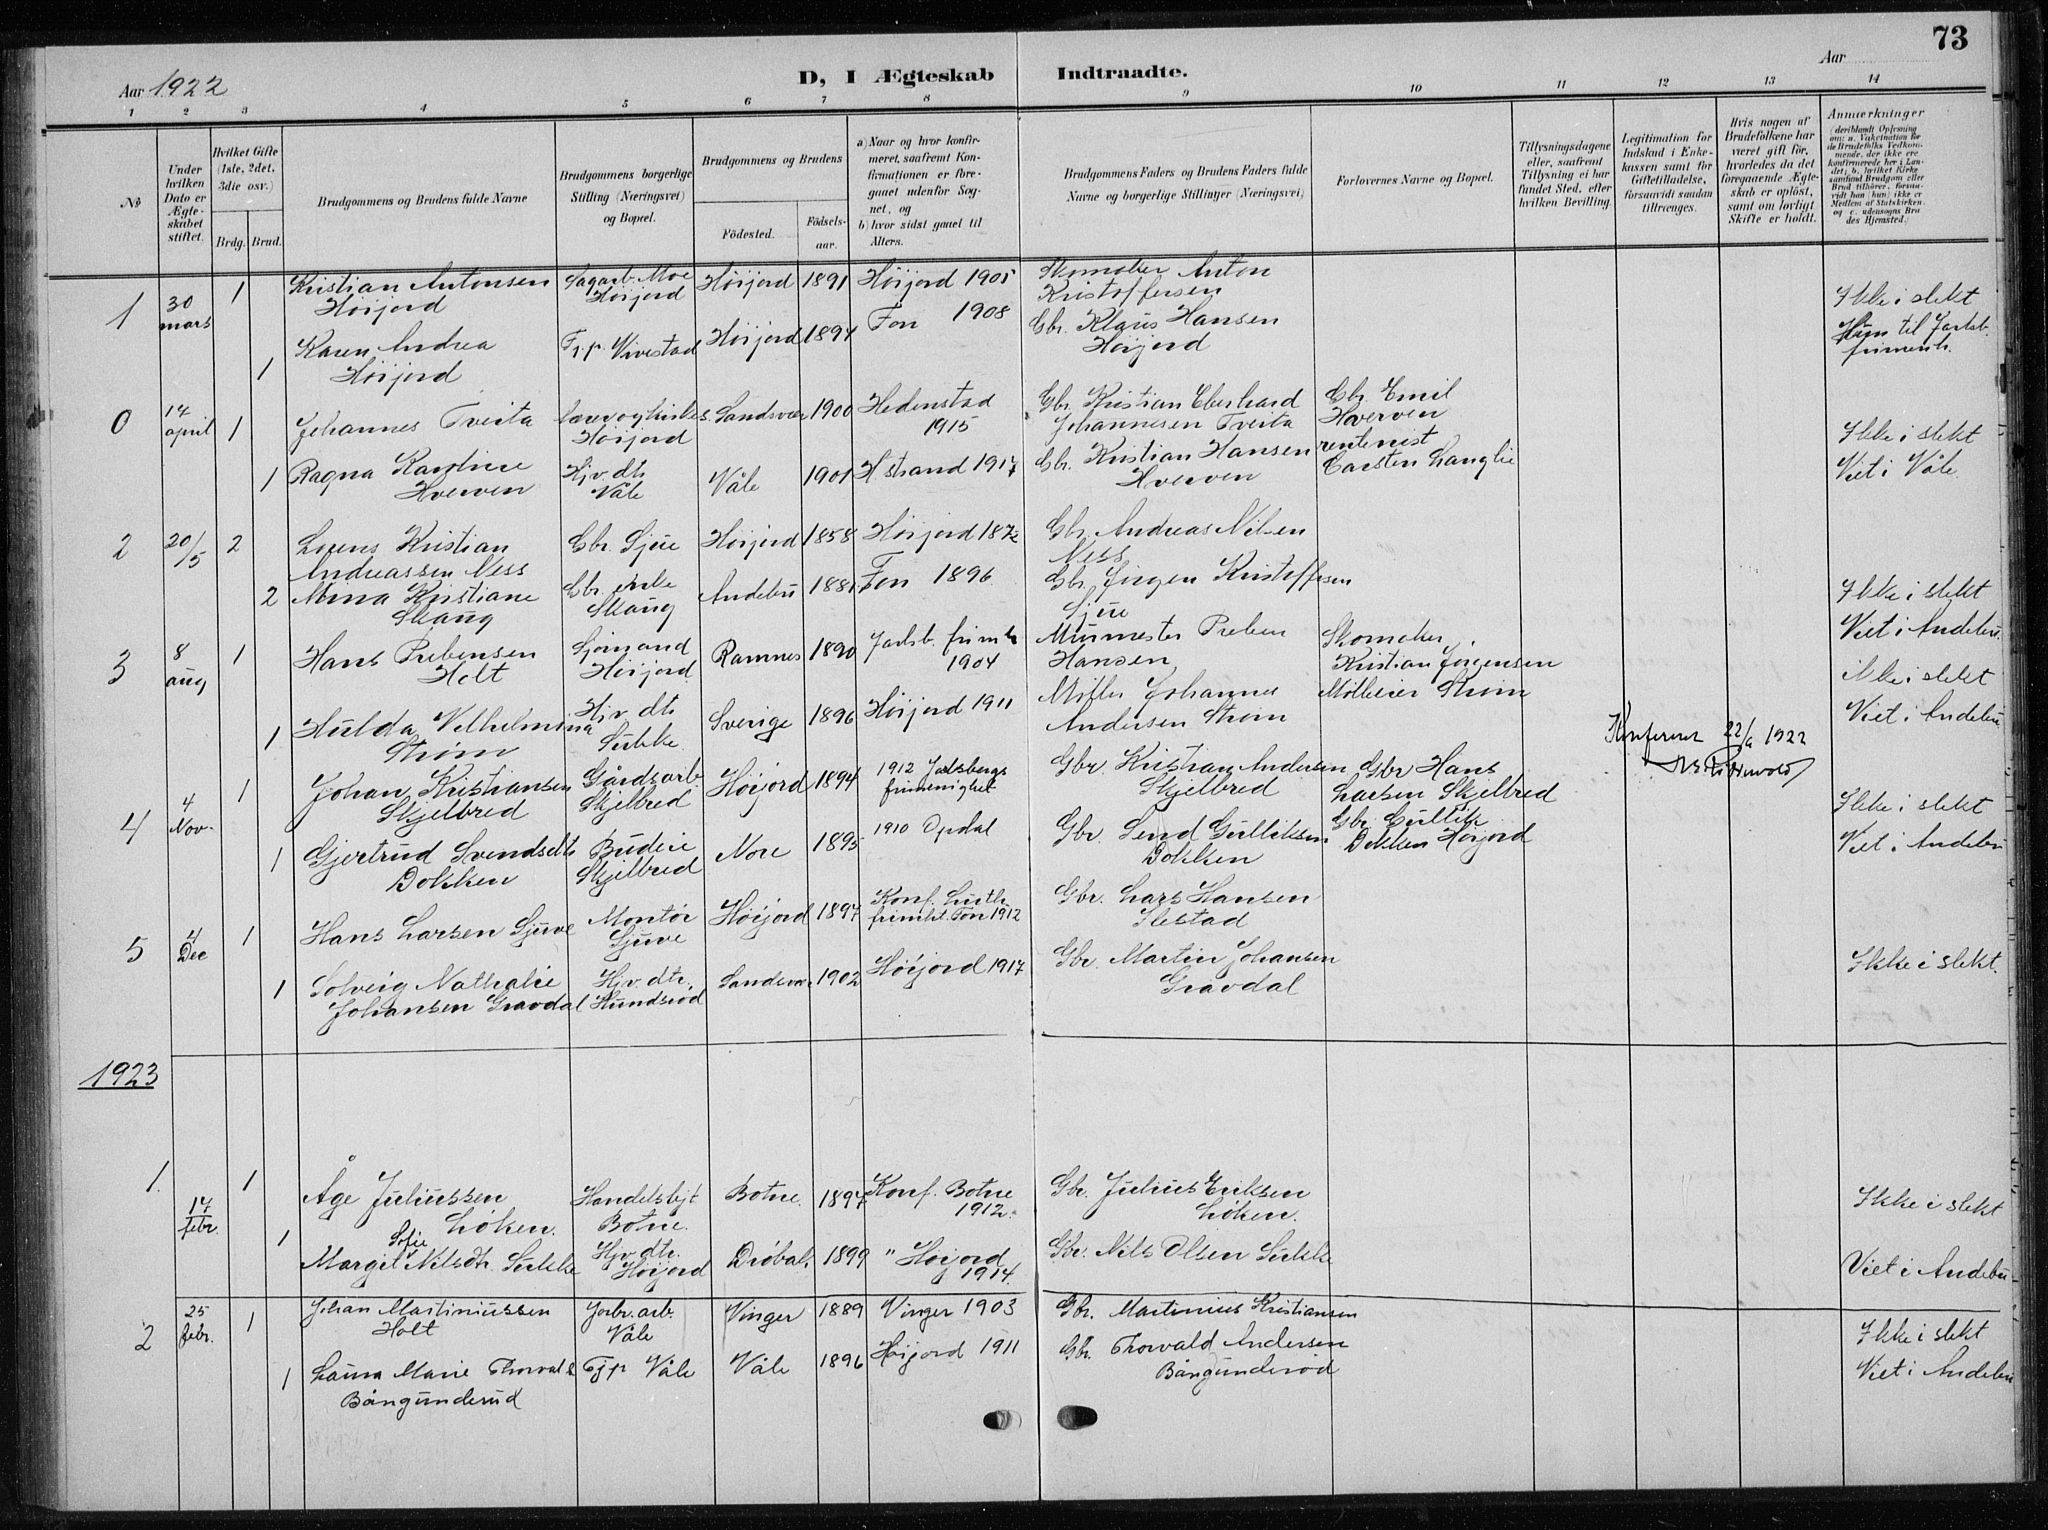 73
Aar 1922
D, I Ægteskab Indtraadte.
Aar
1 2 3 4 5 6 7 8 9 10 11 12 13 14
No
Under hvilken Dato er Ægteskabet stiftet.
Hvilket Gifte (1ste, 2det, 3die osv.)
Brdg. Brud.
Brudgommens og Brudens fulde Navne
Brudgommens borgerlige Stilling (Næringsvei) og Bopæl.
Brudgommens og Brudens
Födested. Födsels-aar.
a) Naar og hvor konfirmeret, saafremt Konfirmationen er foregaaet udenfor Sognet, og
b) hvor sidst gaaet til Alters.
Brudgommens Faders og Brudens Faders fulde Navne og borgerlige Stillinger (Næringsvei)
Forlovernes Navne og Bopæl.
Tillysningsdagene eller, saafremt Tillysning ei har fundet Sted, efter hvilken Bevilling.
Legitimation for Indskud i Enkekassen samt for Giftetilladelse, forsaavidt saadan tiltrænges.
Hvis nogen af Brudefolkene har været gift før, hvorledes da det foregaaende Ægteskab er oplöst, samt om lovligt Skifte er holdt.
Anmærkninger
1 30 mars 1 Kristian Antonsen Høijord Sagarb. Moe Høijord Høijord 1891 Høijord 1905 Skomaker Anton Kristoffersen Ikke i slekt
1 Karen Andrea Høijord Tj.p. Vivestad Høijord 1894 Fon 1908 Gbr. Klaus Hansen Høijord Hun til Jarlsb. frimenh.
0 14 april 1 Johannes Tveita Høijord Sandsvær 1900 Hedenstad 1915 Gbr. Kristian Eberhard Johannesen Tveita Gbr Emil Hverven Ikke i slekt
1 Ragna Hverven Hjv. dtr Våle Våle 1901 Hstrand 1917 Gbr. Kristian Hansen Hverven rentenist Carsten Langlie Viet i Våle
2 20/5 2 Lorens Kristian Andreassen Ness Gbr. Sjue Høijord 1858 Høijord 1872 Gbr. Andreas Nilsen Ness
2 Mina Kristiane Skaug Gbr. enke Skaug Andebu 1881 Fon 1896 Gbr. Jørgen Kristoffersen Sjue Ikke i slekt Viet i Andebu.
3 8 aug 1 Hans Prebensen Holt Sjømand Høijord Ramnes 1890 Jarlsb. frimh 1904 Murmester Preben Hansen Skomaker Kristian Jørgensen ikke i slekt
1 Hulda Vilhelmina Strøm Hjv. dtr Sukke Sverige 1896 Høijord 1911 Møller Johannes Andersen Strøm Strøm Viet i Andebu
Konfereret 22/ 1922
4 4 Nov. 1 Johan Kristiansen Skjelbred Gårdsarb. Skjelbred Høijord 1894 1912 Jarlsbergs frimenighet Gbr. Kristian Andersen Skjelbred Gbr Hans Larsen Skjelbred Ikke i slekt
1 Gjertrud Svendsdtr Dokken Budeie Skjelbred Nore 1895 1910 Opdal Gbr. Send Gulliksen Dokken Gbr. Gullik Dokken Høijord Viet i Andebu
5 4 Dec 1 Hans Larsen Gjuve Montør Gjuve Høijord 1897 Konf. Luth. frimht. Fon 1912 Gbr. Lars Hansen Ilestad
1 Solveig Nathalie Johansen Gravdal Hjv. dtr. Hundsrød Sandsvær 1902 Høijord 1917 Gbr. Martin Johansen Gravdal Ikke i slekt.
1923
1. 17 febr. 1 Åge Juliussen Løken. Handelsbjt Botne. Botne. 1897 Konf. Botne 1912. Gbr. Julius Eriksen Løken. Ikke i slekt
1 Margit Sofie Nilsdtr. Sukke Hjv. dtr. Høijord Drøbak 1899 " Høijord 1914. Gbr. Nils Olsen Sukke Viet i Andebu
2 25 febr. 1 Johan Martiniussen Holt Jorbr. arb. Våle Vinger 1889 Vinger 1903 Gbr. Martinius Kristiansen Ikke i slekt
1 Laura Marie Thorvalds Bångunderud Tjp Våle Våle 1896 Høijord 1911 Gbr. Thorvald Andersen Bångunderød Viet i Andebu